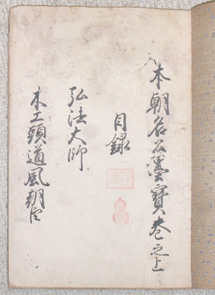 本朝名公墨寶卷之上
目録
弘法大師
木工頭道風朝臣